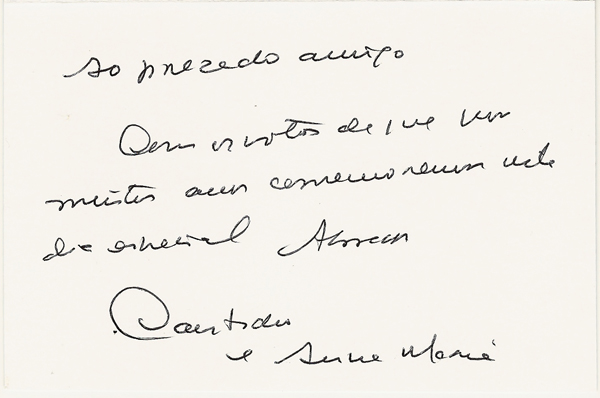 Ao prezado amigo
Com os votos de que por
muitos anos comemoremos este
dia especial Abraços
e Anna Maria